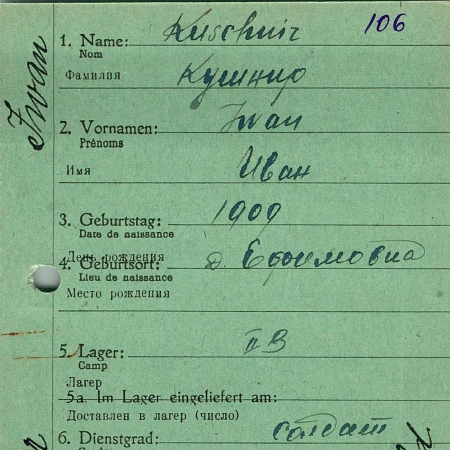 106
Iwan
1. Name: Kuschnir
Nom
Фамилия Кушнир
2. Vornamen: Iwan
Prénoms
Имя Иван
3. Geburtstag: 1909
Date de naissance
День рождения
4. Geburtsort: д. Ефимовка
Lieu de naissance
Место рождения
5. Lager: II B
Camp
Лагерь
5a. Im Lager eingeliefert am:
Доставлен в лагерь (число)
6. Dienstgrad: солдат